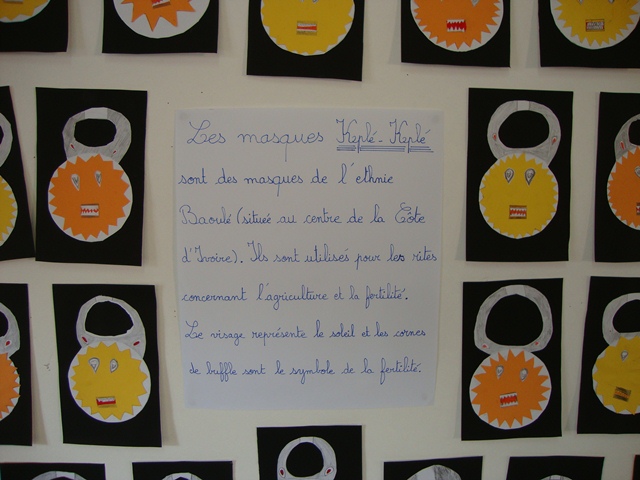 Les masques Keplé-Keplé
sont des masques de l'ethnie
Baoulé (située au centre de la Côte
d'Ivoire). Ils sont utilisés pour les rites
concernant l'agriculture et la fertilité.
Le visage représente le soleil et les cornes
de buffle sont le symbole de la fertilité.